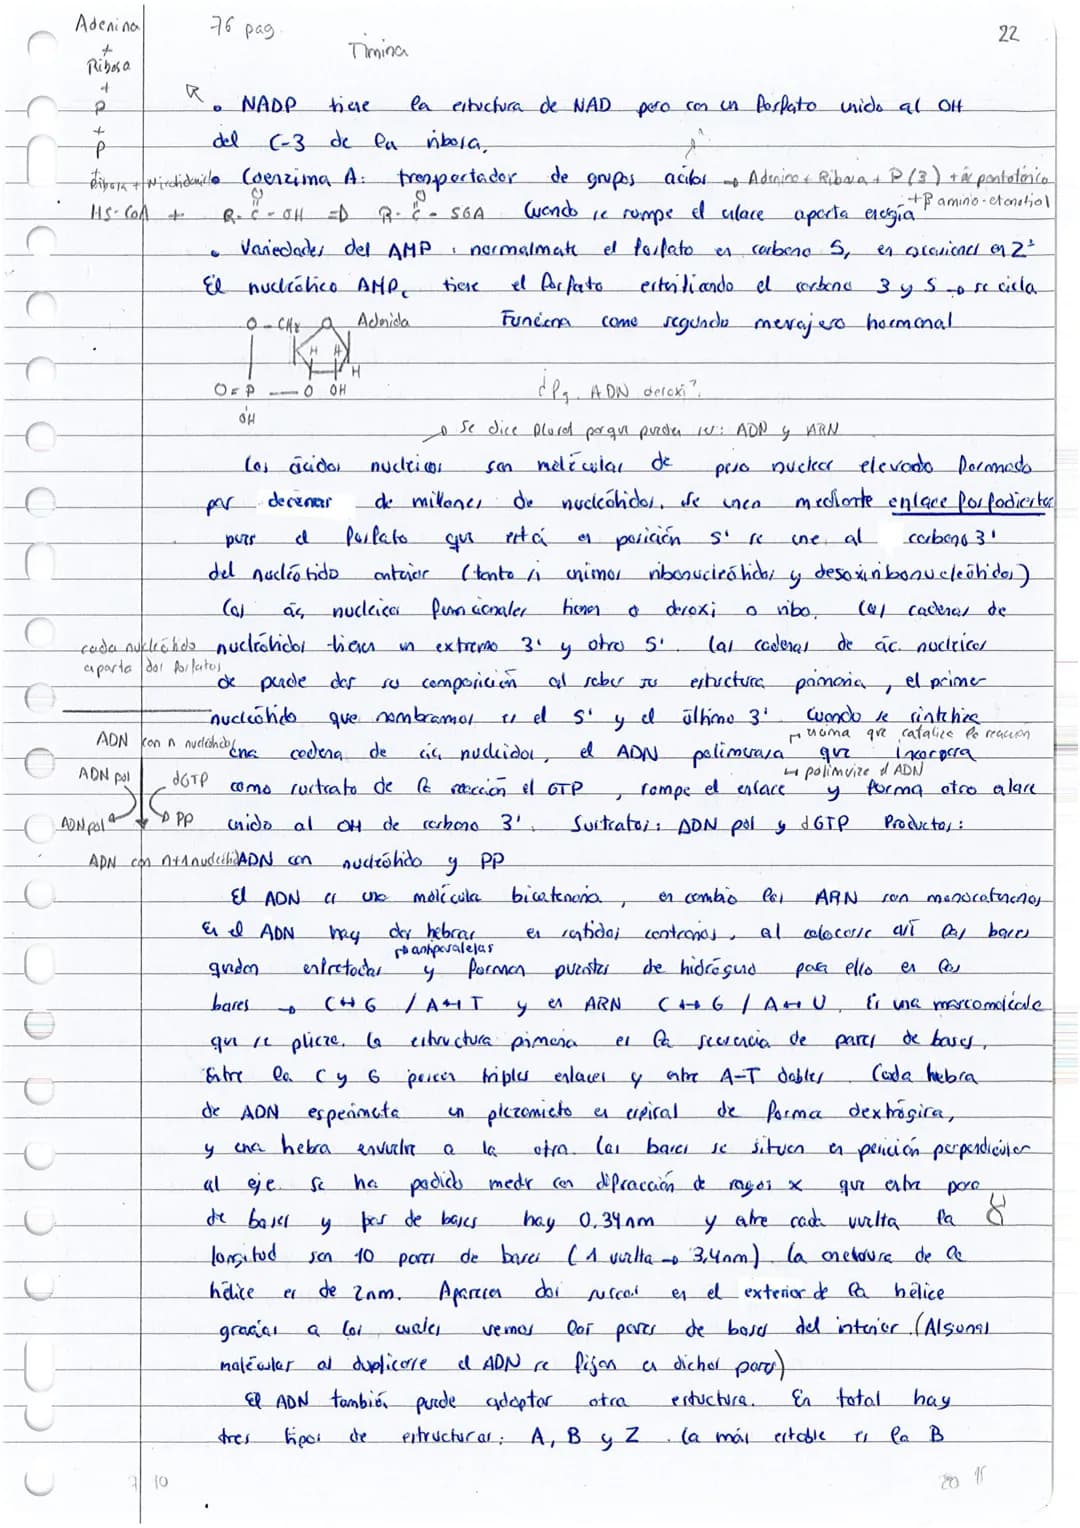 Adenina
+
Ribosa
+
P
+
P
+
Ribosa + Nicotidamida
76 pag.
22
Timina
• NADP tiene la estuctura de NAD pero con un fosfato unido al OH
del C-3 de la ribosa.
Coenzima A: transportador de grupos acilos → Adenina + Ribosa + P (3) + ác pantoténico
+ β amino-etanotiol
HS-CoA + R-C-OH => R-C-SGA Cuando se rompe el enlace aporta energía
O O
• Variedades del AMP: normalmente el fosfato en carbono 5, en ocasiones en 2'
El nucleótico AMPc tiene el fosfato esterificando el carbono 3 y 5 → se cicla
Funciona como segundo mensajero hormonal
O - CH2 O Adenida
H H
H
O = P — O OH
OH
¿Pq. ADN desoxi?
→ Se dice plural porque pueden ser: ADN y ARN
Los ácidos nucleicos son moléculas de peso nuclear elevado formado
por decenas de millones de nucleótidos. Se unen mediante enlace fosfodiester
pues el fosfato que está en posición 5' se une al carbono 3'
del nucleótido anterior (tanto si unimos ribonucleótidos y desoxirribonucleótidos)
Los ác. nucleicos funcionales tienen o desoxi o ribo. Las cadenas de
nucleótidos tienen un extremo 3' y otro 5'. Las cadenas de ác. nucleicos
cada nucleótido
aparta dos fosfatos
se puede dar su composición al saber su estuctura primaria, el primer
nucleótido que nombramos es el 5' y el último 3'. Cuando se sintetiza
→ enzima que cataliza la reacción
una cadena de ác. nucleidos, el ADN polimerasa que incorpora
↳ polimerize el ADN
como sustrato de la reacción el GTP, rompe el enlace y forma otro alare
unido al OH de carbono 3'. Sustratos: ADN pol y dGTP Productos:
ADN con nucleótido y PP
ADN con n nucleótidos
ADN pol dGTP
ADN pol PP
ADN con n+1 nucleótid
El ADN es una molécula bicatenaria, en cambio los ARN son monocatenarios
En el ADN hay dos hebras en sentidos contrarios, al colocarse así las bases
→ antiparalelas
quedan enfrentadas y forman puentes de hidrógeno para ello en las
bases → C↔G / A↔T y en ARN C↔G / A↔U. Es una marcomolécula
que se plieza. La estructura primaria es la secuencia de pares de bases,
Entre la C y G aparecen triples enlaces y entre A-T dobles. Cada hebra
de ADN esperimeta un plezamieto en espiral de forma dextrógira,
y una hebra envuelve a la otra. Las bases se situen en posición perpendicular
al eje. Se ha podido medir con difracción de rayos x que entre pare
de bases y par de bases hay 0.34nm y entre cada vuelta la
longitud son 10 pares de bases (1 vuelta → 3,4nm). La anchura de la
hélice es de 2nm. Aparecen dos surcos en el exterior de la hélice
gracias a los cuales vemos los pares de bases del interior. (Algunas
moléculas al duplicarse el ADN se fijan en dichos pares)
El ADN también puede adoptar otra estuctura. En total hay
tres tipos de estructuras: A, B y Z. La más estable es la B
7 10